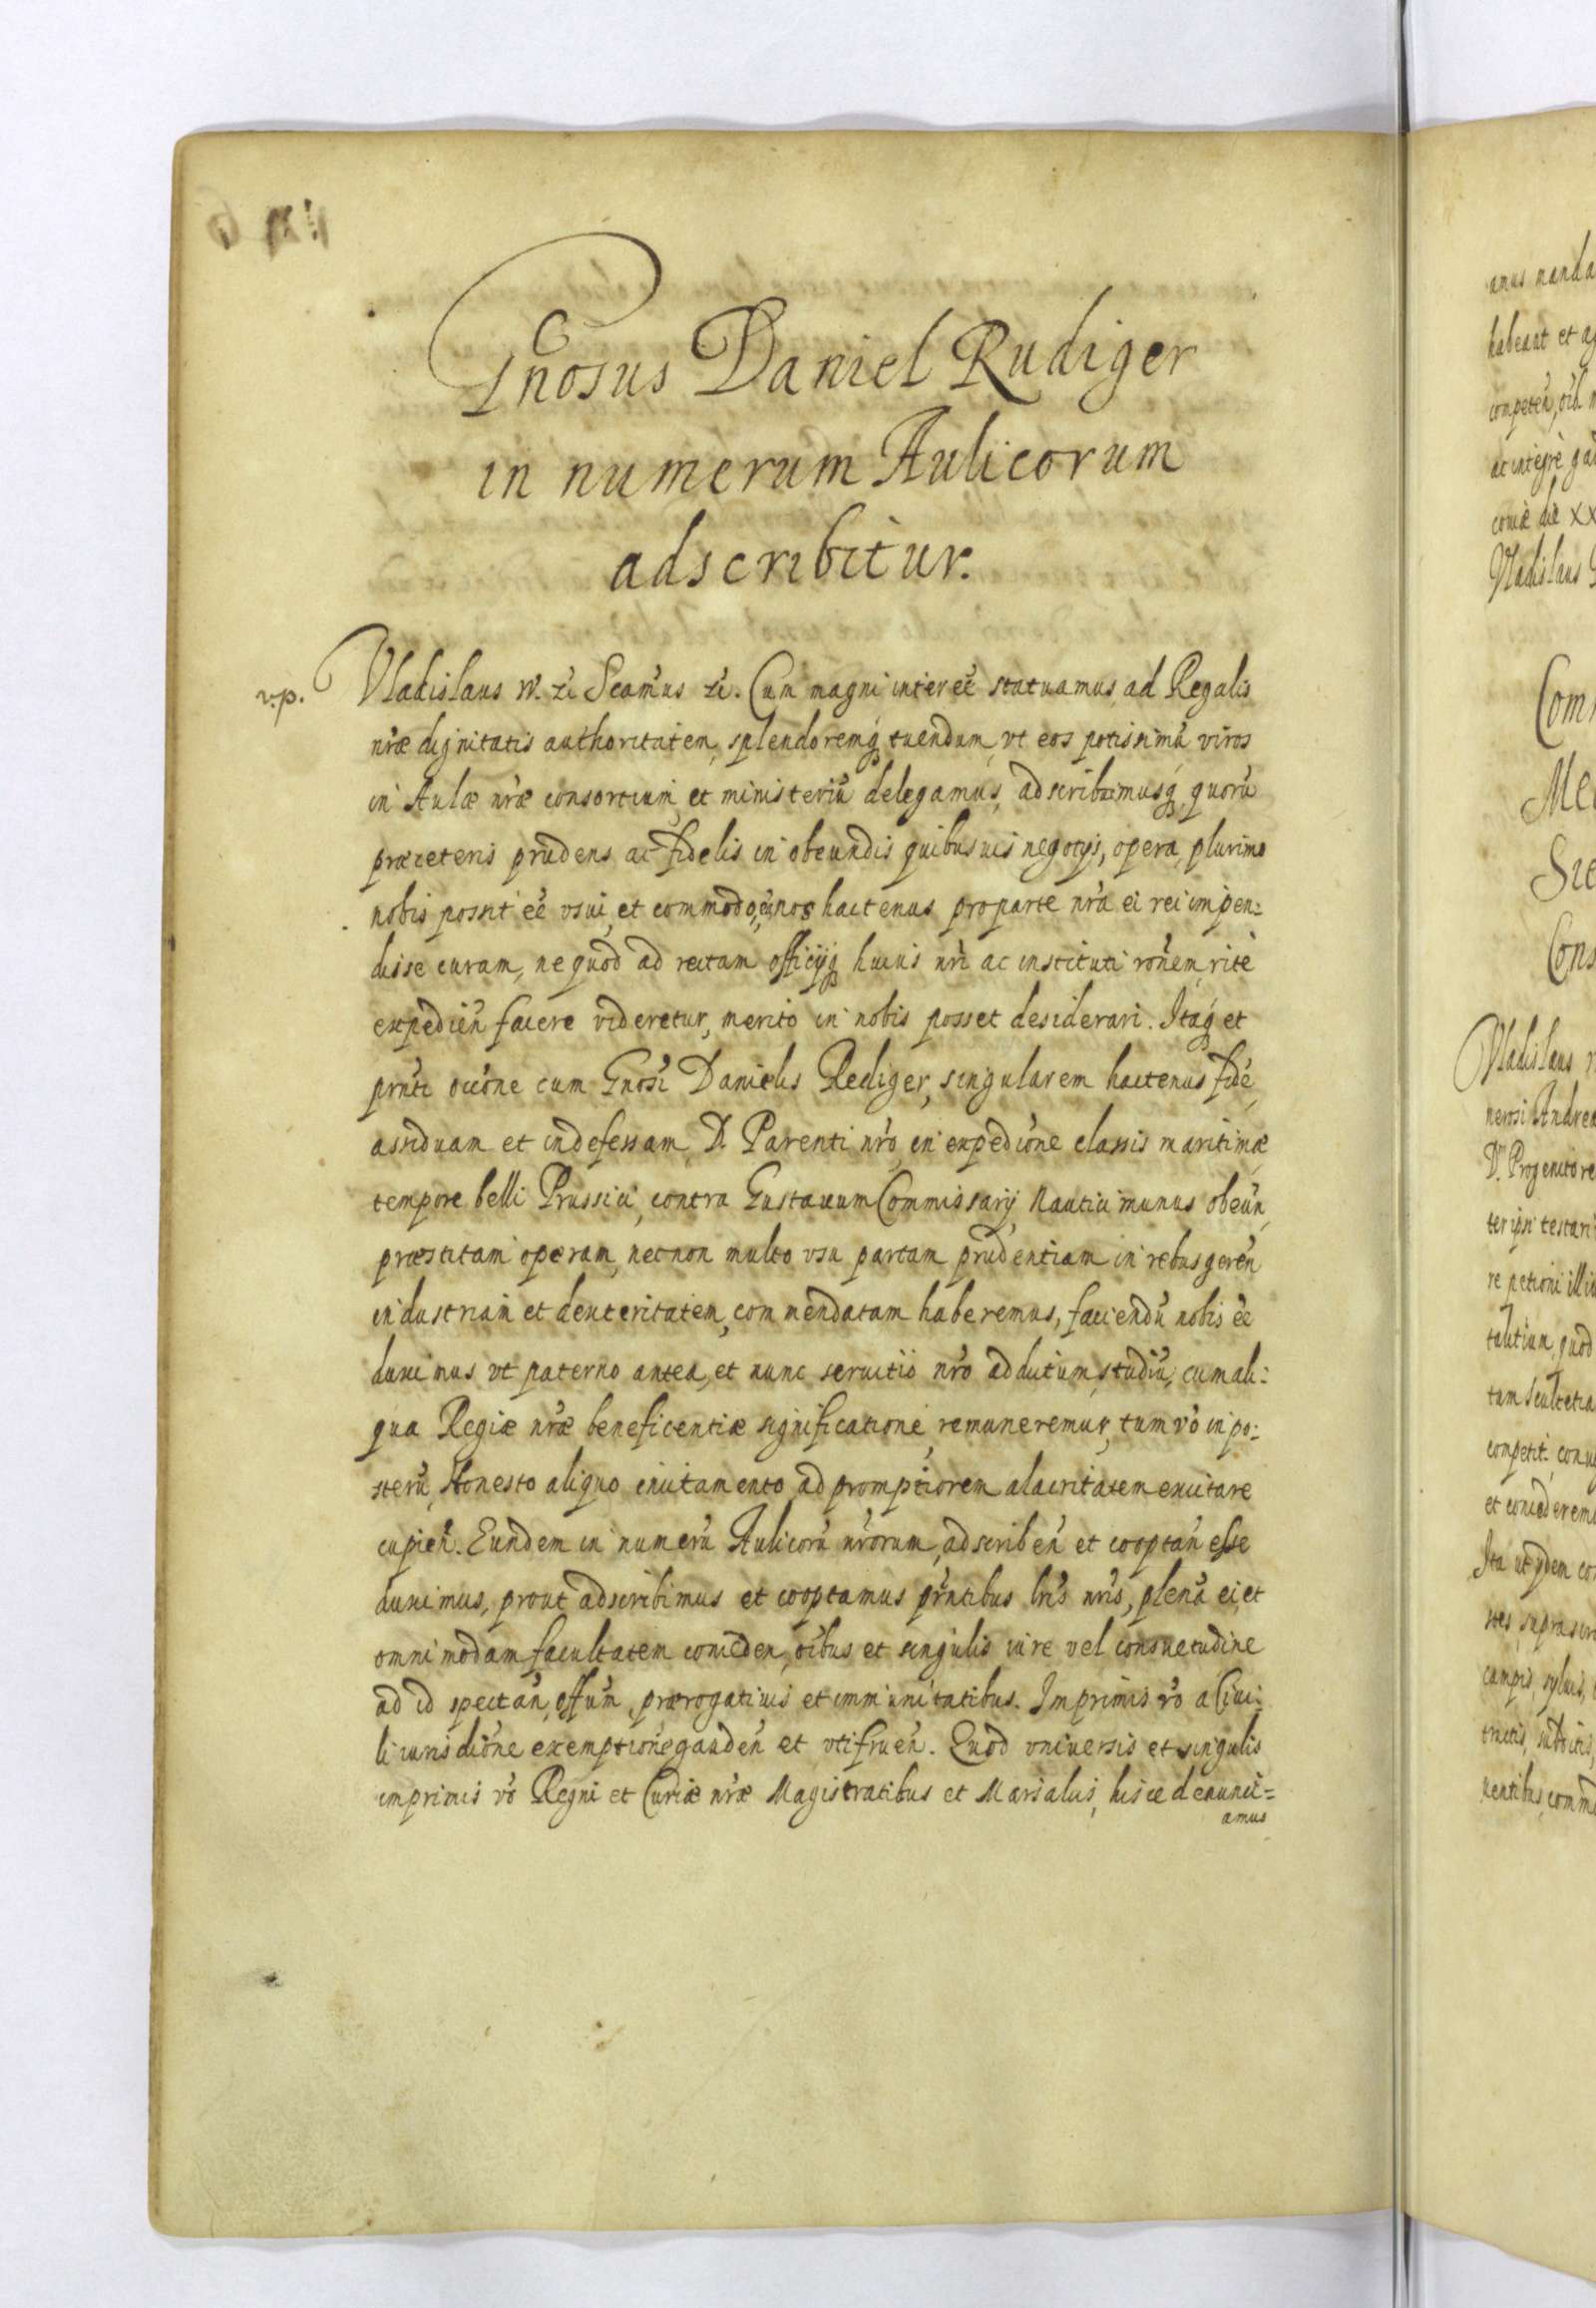 Gnosus Daniel Rudiger
in numerum Aulicorum
adscribitur.
v.p.
Vladislaus IV. etc Seam̃us etc. Cum magni interee͂ statuamus, ad Regalis
nr̃æ dignitatis authoritatem, splendoremq́ tuendum, vt eos potissimũ viros
in Aulæ nr̃æ consortium, et ministeriũ delegamus, adscribimusq́, quorũ
præceteris prudens ac fidelis in obeundis quibusuis negotijs, opera, plurimo
nobis possit ee͂ vsui, et commodo, nos hactenus pro parte nr̃a ei rei impen:
disse curam, ne quod ad rectam officijq́ huius nr̃i ac instituti rõnem rite
expedieñ facere videretur, merito in nobis posset desiderari. Itaq́ et
pr̃nti occõne cum Gnosi Danielis Rediger, singularem hactenus fidẽ
assiduam et indefessam, D. Parenti nr̃o, in expediõne classis maritimæ
tempore belli Prussici, contra Gustauum Commissarij Nautici munus obeuñ,
præstitam operam, necnon multo vsu partam prudentiam in rebus gereñ
industriam et dexteritatem, commendatam haberemus, faciendũ nobis ee͂
duximus vt paterno antea, et nunc seruitio nr̃o addictum, studiũ, cum ali:
qua Regiæ nr̃æ beneficentiæ significatione, remuneremur, tum võ in po:
sterũ, Honesto aliquo incitamento ad promptiorem alacritatem excitare
cupieñ. Eundem in numerũ Aulicorũ nr̃orum, adscribeñ et cooptañ esse
duximus, prout adscribimus et cooptamus pr̃ntibus lr̃is nr̃is, plenã ei, et
omnimodam facultatem conceden, oĩbus et singulis iure vel consuetudine
ad id spectañ, offum, prærogatiuis et immunitatibus. Imprimis võ a Ciui:
li iurisdiõne exemptione gaudeñ et vtifrueñ. Quod vniuersis et singulis
imprimis võ Regni et Curiæ nr̃æ Magistratibus et Marsalcis, hisce denunci=
amus
anus manda
habeant et
ac integrè
Vladislaus
Com
Me
Cons
Vladislaus
nerosi Andrea
D. Progenitore
ter ipsi testari
re petioni
quod
tam Scultetia
competit
et concederem
Ita
campis, syluis,
comm